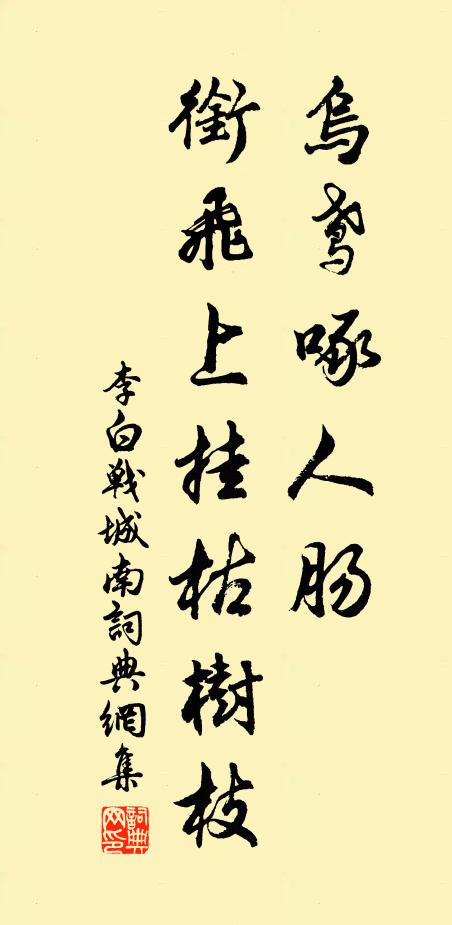 烏鸢啄人肠
銜飛上挂枯樹枝
李白戰城南詞典網集
詞典网印